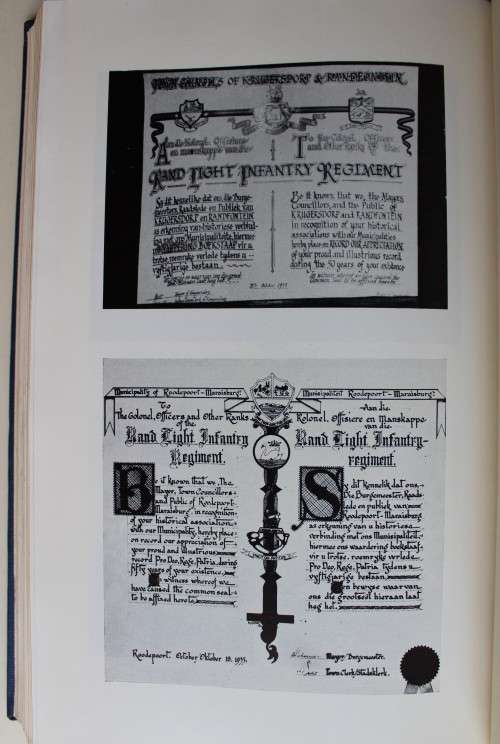 TOWN COUNCILS OF KRUGERSDORP & RANDFONTEIN
Aan die Kolonel, Offisiere
en manskappe van die
To the Colonel, Officers
and Other Ranks of the
RAND LIGHT INFANTRY REGIMENT
So dit kennelik dat ons, die Burge-
meesters, Raadslede en Publiek van
KRUGERSDORP en RANDFONTEIN
as erkenning van historiese verbin-
ding met ons Munisipaliteite, hiermee
WAARDERING BOEKSTAAF vir u
trotse roemryke verlede tydens u
vyftigjarige bestaan
Be it known, that we, the Mayors,
Councillors, and the Public of
KRUGERSDORP and RANDFONTEIN
in recognition of your historical
associations with our Municipalities
hereby place on RECORD OUR APPRECIATION
of your proud and illustrious record
during the 50 years of your existence
1955
Municipality of Roodepoort-Maraisburg
Munisipaliteit Roodepoort-Maraisburg
To
The Colonel, Officers and Other Ranks
of the
Rand Light Infantry
Regiment.
Be it known that we, The
Mayor, Town Councillors
and Public of Roodepoort-
Maraisburg, in recognition
of your historical association
with our Municipality, hereby place
on record our appreciation of
your proud and illustrious
record Pro Deo, Rege, Patria, during
fifty years of your existence,
In witness whereof we
have caused the common seal
to be affixed hereto.
Aan die
Kolonel, Offisiere en Manskappe
van die
Rand Light Infantry-
regiment.
Sy dit kennelik dat ons,
Die Burgemeester, Raads-
lede en publiek van
Roodepoort-Maraisburg
as erkenning van u historiese
verbinding met ons Munisipaliteit,
hiermee ons waardering boekstaaf
vir u trotse, roemryke verlede,
Pro Deo, Rege, Patria tydens u
vyftigjarige bestaan.
En bewyse waarvan
ons die grootseël hieraan laat
heg het.
Roodepoort, October/Oktober 18, 1955.
Mayor/Burgemeester.
Town Clerk/Stadsklerk.